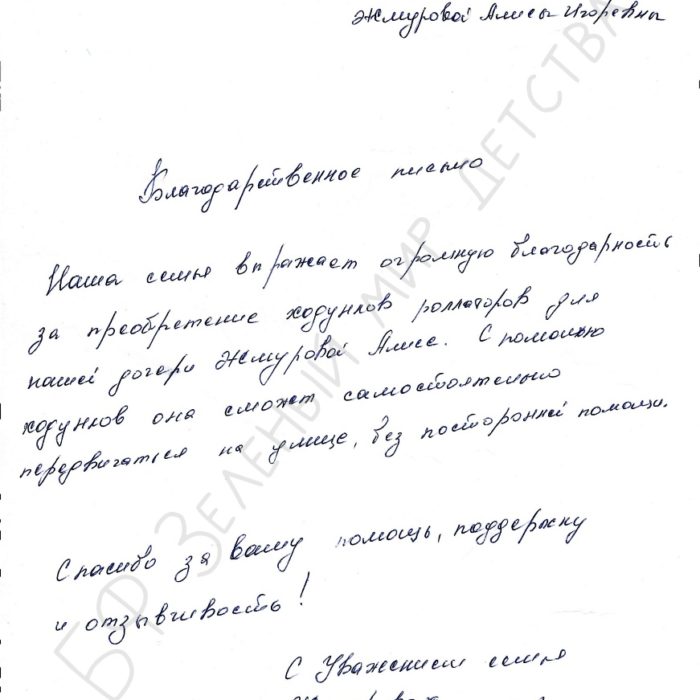 Жмуровой Алисы Игоревны
Благодарственное письмо
Наша семья выражает огромную благодарность
за преобретение ходунков роллаторов для
нашей дочери Жмуровой Алисе. С помощью
ходунков она сможет самостоятельно
передвигаться на улице, без посторонней помощи.
Спасибо за вашу помощь, поддержку
и отзывчивость!
С Уважением семья
БФ ЗЕЛЕНЫЙ МИР ДЕТСТВА